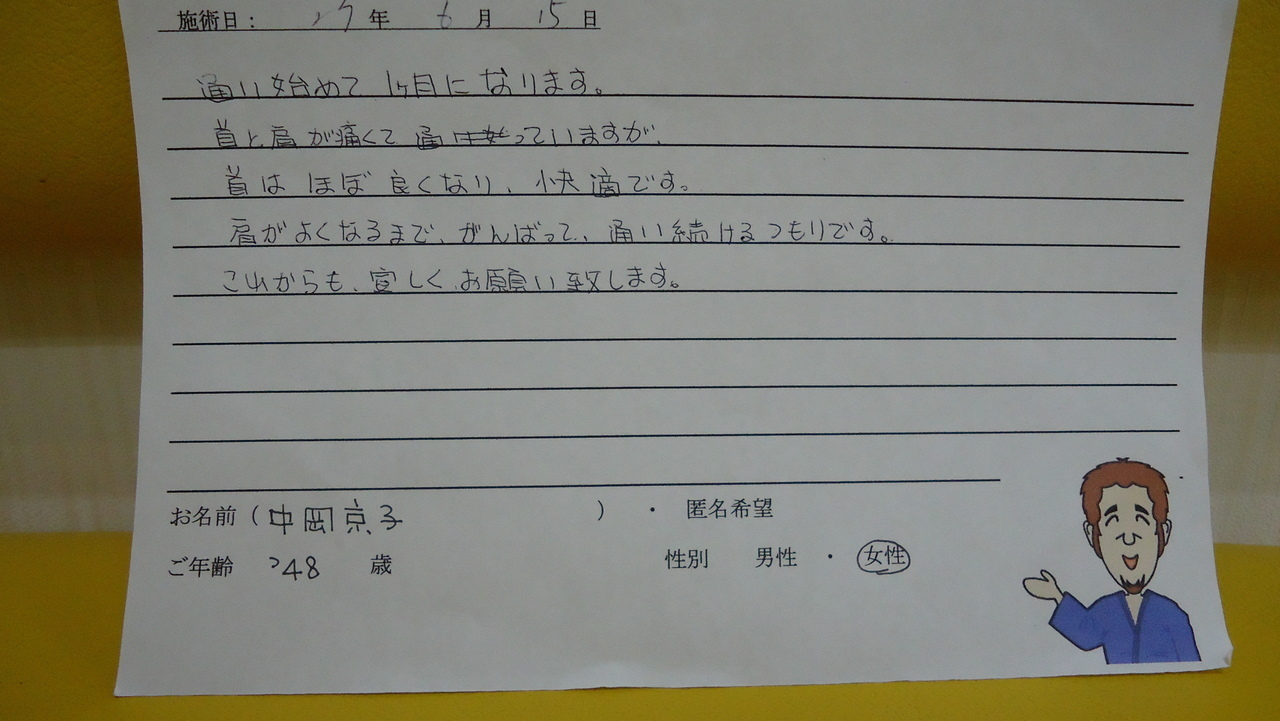 施術日： 27年 6月 15日
通い始めて 1ヶ月になります。
首と肩が痛くて通っていますが、
首は ほぼ 良くなり、快適です。
肩がよくなるまで、がんばって、通い続けるつもりです。
これからも、宜しく、お願い致します。
お名前（中岡京子 ） ・ 匿名希望
ご年齢 48 歳 性別 男性 ・ 女性